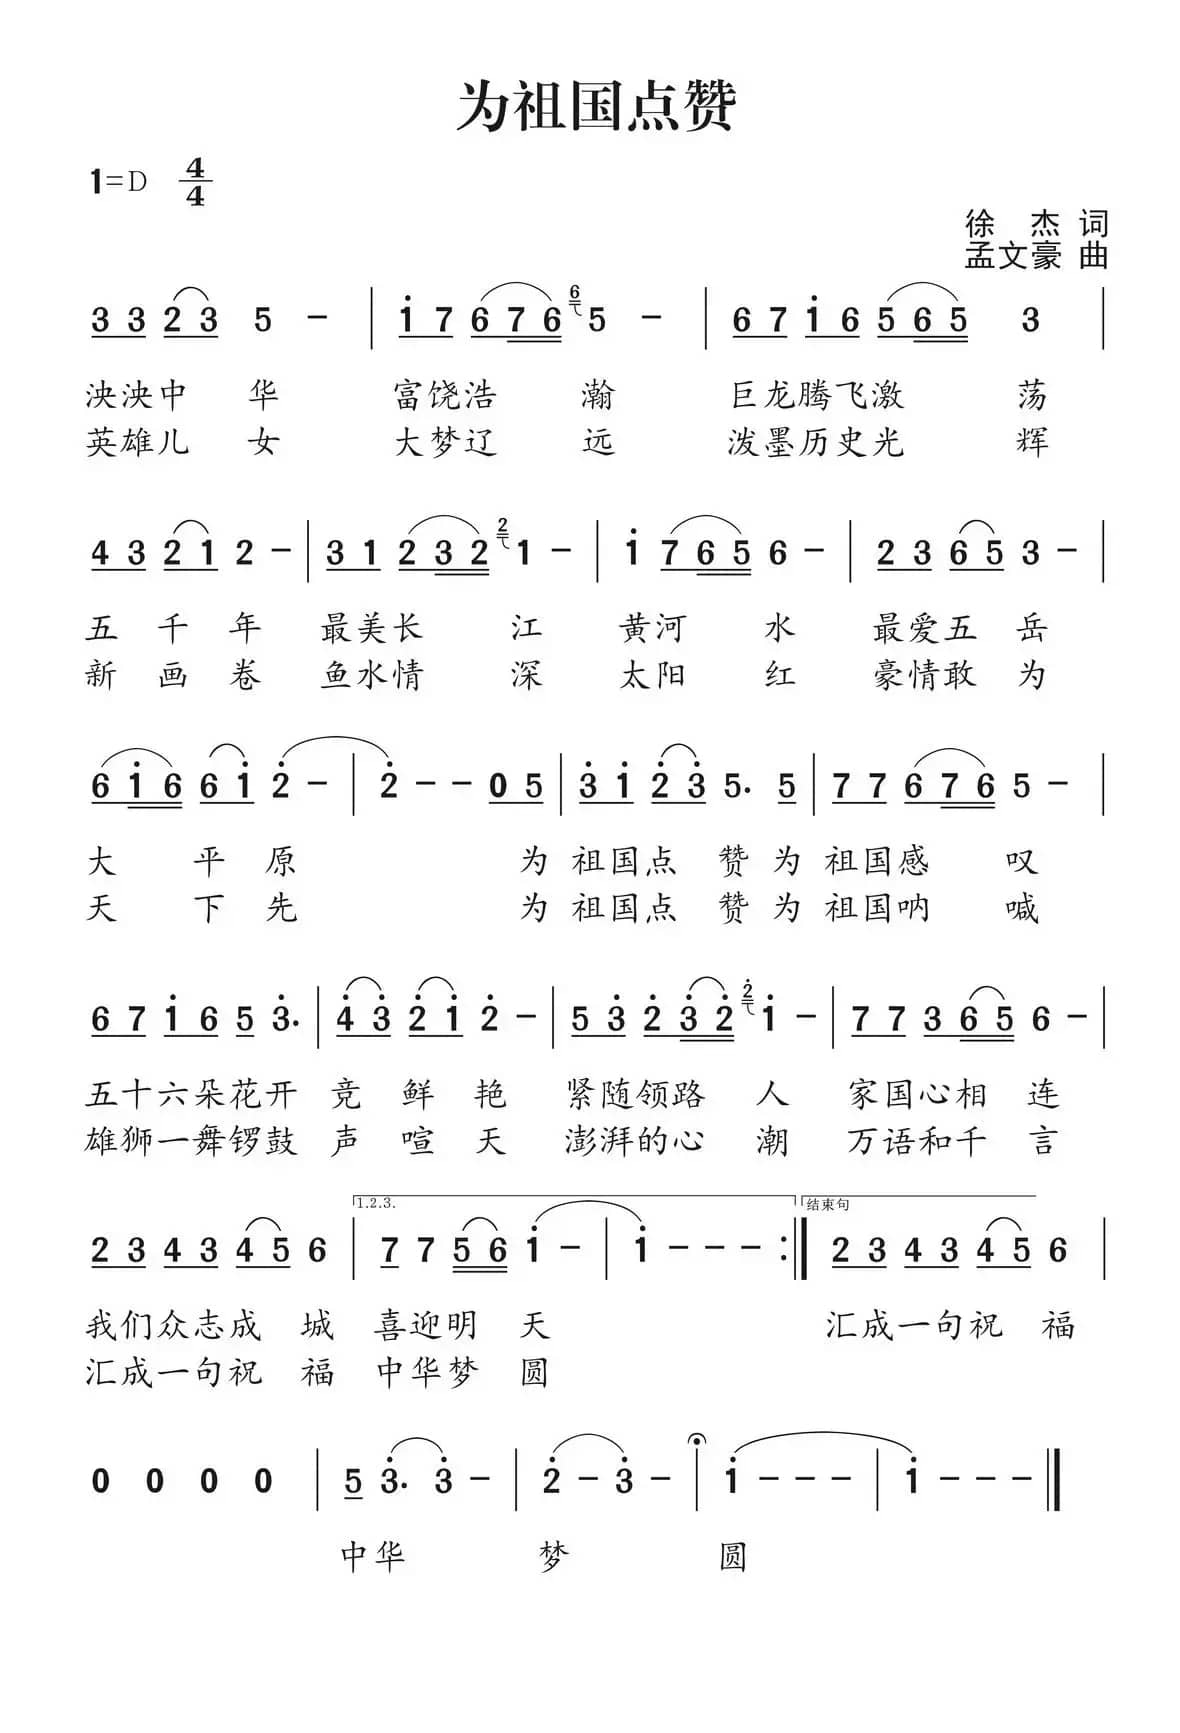 为祖国点赞
1=D 4/4
徐 杰 词
孟文豪 曲
3 3 2 3 5 - | i 7 6 7 6 6 5 - | 6 7 i 6 5 6 5 3 |
泱泱中 华 富饶浩 瀚 巨龙腾飞激 荡
英雄儿 女 大梦辽 远 泼墨历史光 辉
4 3 2 1 2 - | 3 1 2 3 2 2 1 - | i 7 6 5 6 - | 2 3 6 5 3 - |
五 千 年 最美长 江 黄河 水 最爱五 岳
新 画 卷 鱼水情 深 太阳 红 豪情敢 为
6 i 6 6 i 2̇ - | 2̇ - - 0 5 | 3̇ i 2̇ 3̇ 5. 5 | 7 7 6 7 6 5 - |
大 平 原 为 祖国点 赞 为 祖国感 叹
天 下 先 为 祖国点 赞 为 祖国呐 喊
6 7 i 6 5 3̇. | 4̇ 3̇ 2̇ i 2̇ - | 5 3̇ 2̇ 3̇ 2̇ 2̇ i - | 7 7 3 6 5 6 - |
五十六朵花开 竞 鲜 艳 紧随领路 人 家国心相 连
雄狮一舞锣鼓 声 喧 天 澎湃的心 潮 万语和千 言
1.2.3. 结束句
2 3 4 3 4 5 6 | 7 7 5 6 i - | i - - - :| 2 3 4 3 4 5 6 |
我们众志成 城 喜迎明 天 汇成一句祝 福
汇成一句祝 福 中华梦 圆
0 0 0 0 | 5 3̇. 3̇ - | 2̇ - 3̇ - | i - - - | i - - - ||
中华 梦 圆